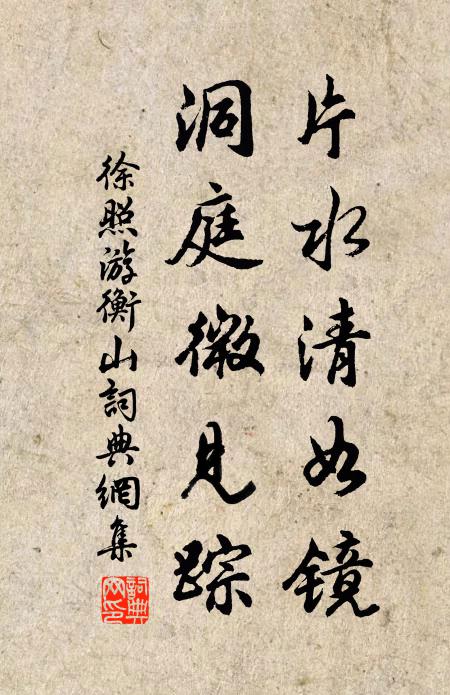 片水清如镜
洞庭微见踪
徐照游衡山詞典網集
詞典网印